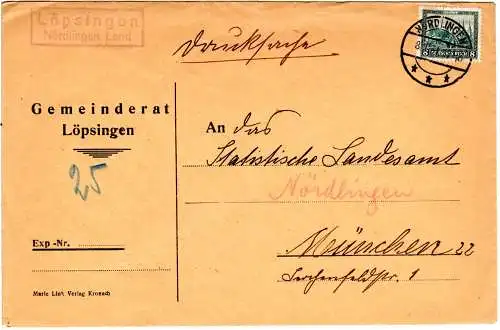 Löpsingen
Nördlingen Land
Drucksache
NÖRDLINGEN
8
8
Gemeinderat
Löpsingen
25
An das
Statistische Landesamt
Nördlingen
München 22
Lerchenfeldstr. 1
Exp-Nr.
Marie Link Verlag Kronach